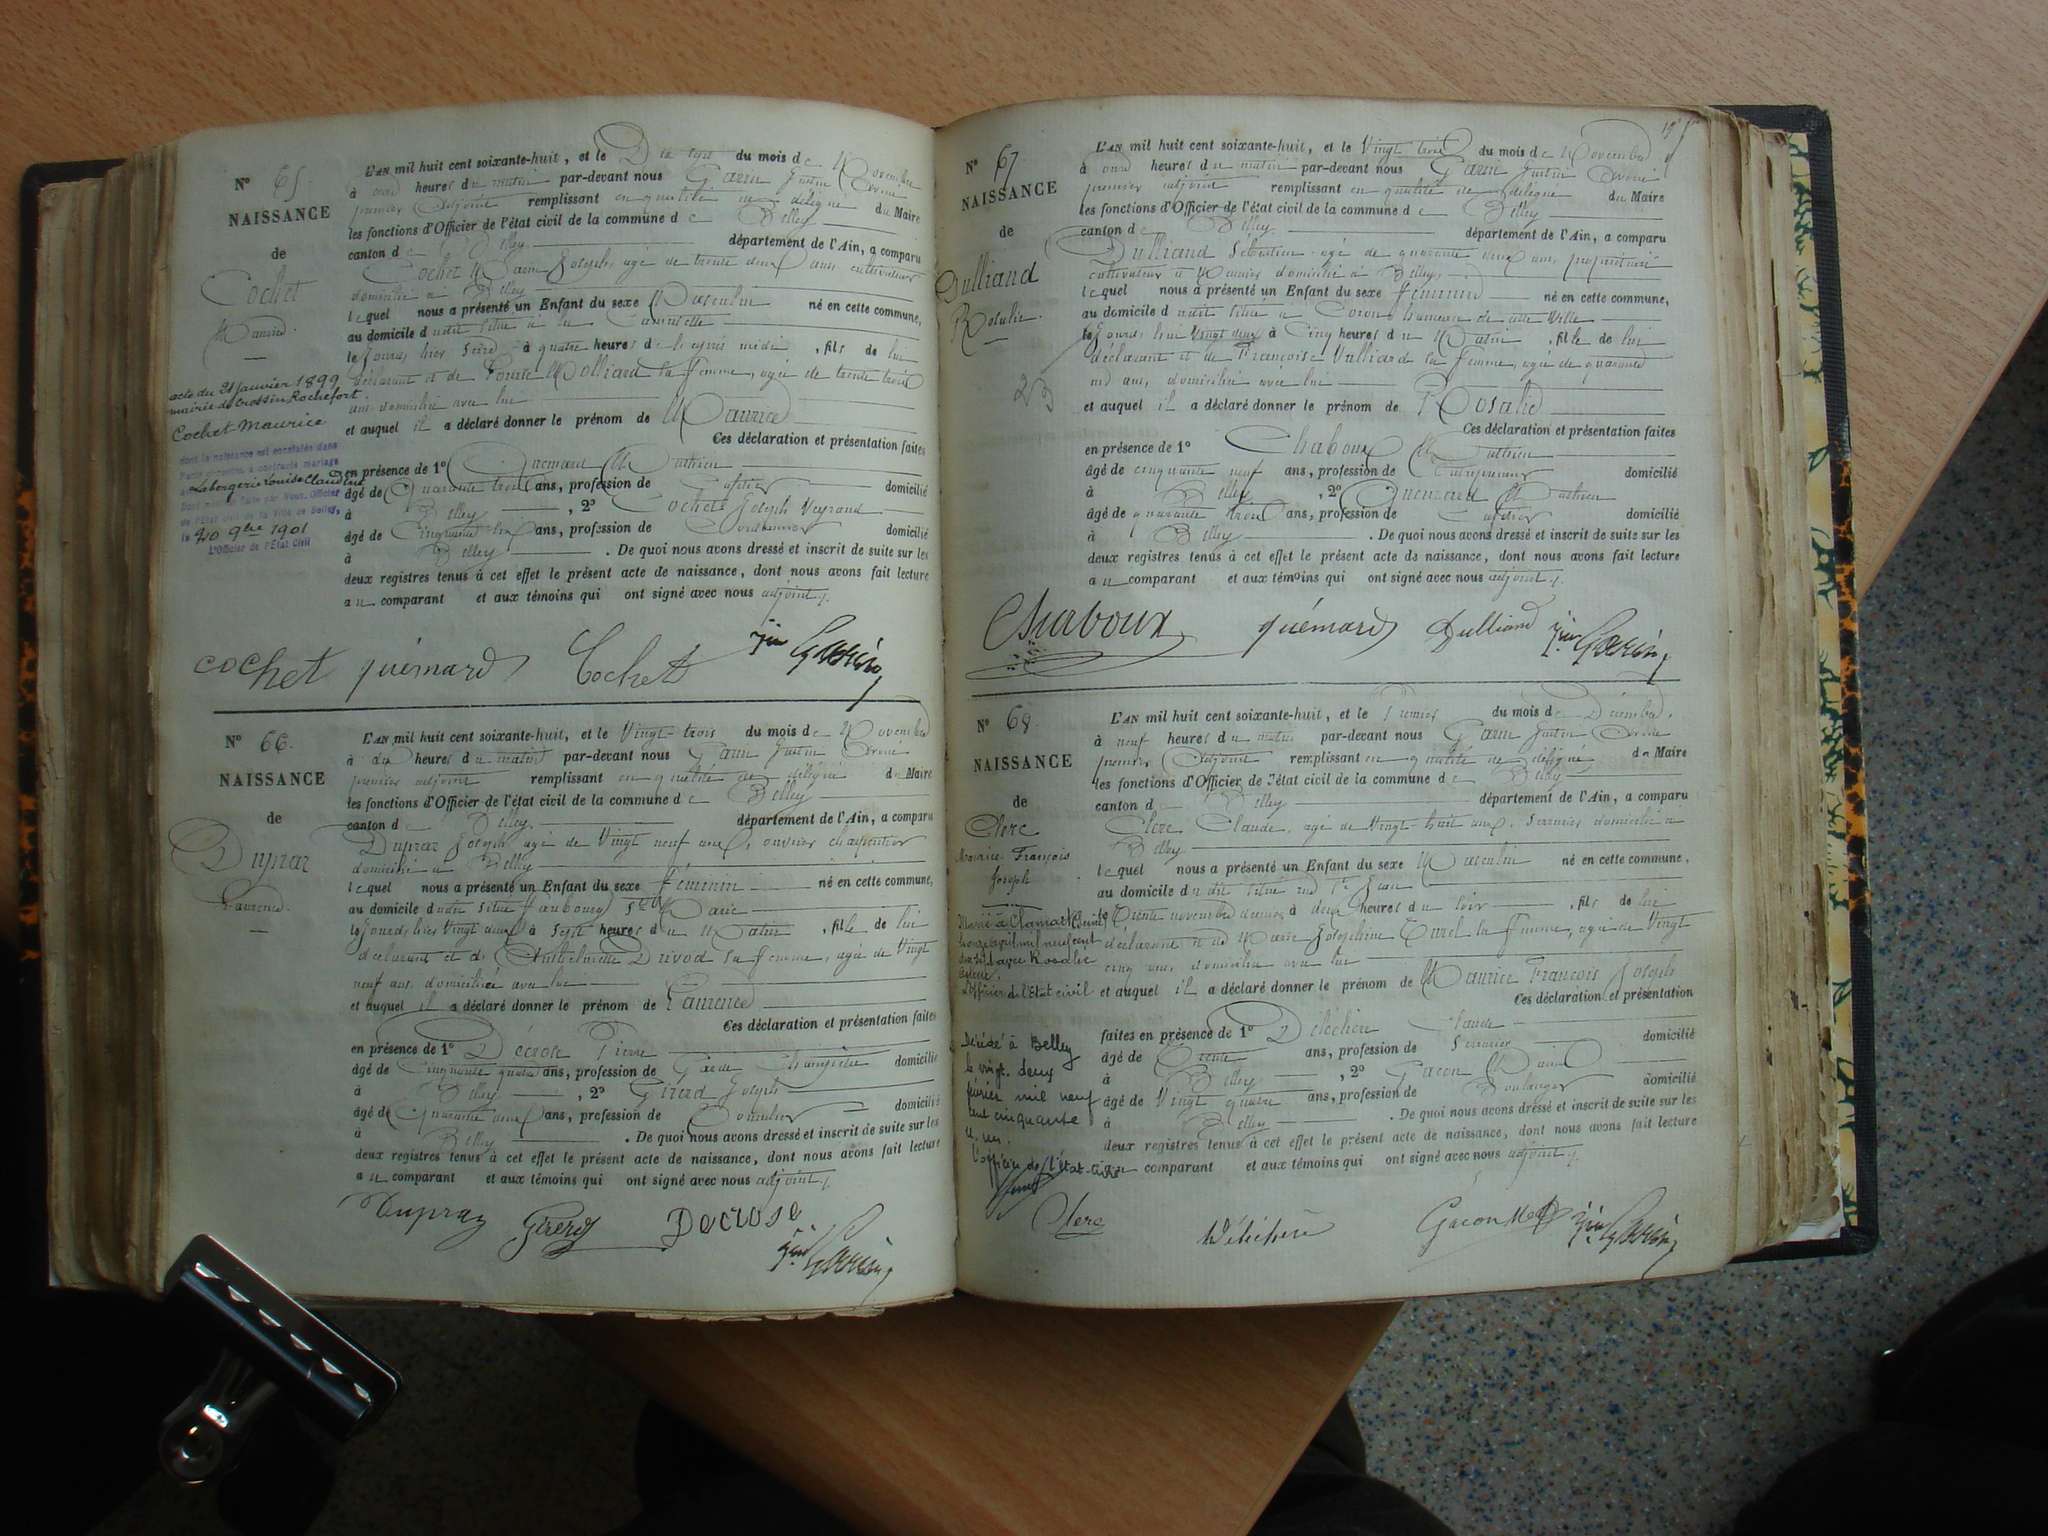 N° 65
NAISSANCE
de
Cochet
Maurice
acte du 21 janvier 1899
mairie de Cressin Rochefort.
Cochet Maurice
dont la naissance est constatée dans
a contracté mariage
Labergerie Louise Claudine
de l'État civil de la Ville de Belley,
le 20 9bre 1901
L'Officier de l'État Civil
L'AN mil huit cent soixante-huit, et le Dix sept du mois de Novembre
à onze heures du matin par-devant nous Garin Justin
premier adjoint remplissant en qualité de délégué du Maire
les fonctions d'Officier de l'état civil de la commune de Belley
canton de Belley département de l'Ain, a comparu
Cochet Marin Joseph, agé de trente deux ans cultivateur
domicilié à Belley
lequel nous a présenté un Enfant du sexe Masculin né en cette commune,
au domicile du dit situé à la
le jourd'hier Seize à quatre heures de l'après midi, fils de lui
déclarant et de Molliard sa femme, agée de trente trois
ans domiciliée avec lui
et auquel il a déclaré donner le prénom de Maurice
Ces déclaration et présentation faites
en présence de 1° Quémard Mathieu
âgé de Quarante trois ans, profession de domicilié
à Belley, 2° Cochet Joseph
âgé de Cinquante ans, profession de Cordonnier domicilié
à Belley. De quoi nous avons dressé et inscrit de suite sur les
deux registres tenus à cet effet le présent acte de naissance, dont nous avons fait lecture
au comparant et aux témoins qui ont signé avec nous adjoint ./.
cochet quémard Cochet Jin Garin
N° 66.
NAISSANCE
de
Dupraz
Laurence.
L'AN mil huit cent soixante-huit, et le Vingt trois du mois de Novembre
à dix heures du matin par-devant nous Garin Justin
premier adjoint remplissant en qualité de délégué du Maire
les fonctions d'Officier de l'état civil de la commune de Belley
canton de Belley département de l'Ain, a comparu
Dupraz Joseph agé de Vingt neuf ans, ouvrier charpentier
domicilié à Belley
lequel nous a présenté un Enfant du sexe féminin né en cette commune,
au domicile du dit situé faubourg St Marie
le jourd'hier vingt deux à Sept heures du Matin, fille de lui
déclarant et de Anthelmette Drivod sa femme, agée de Vingt
neuf ans domiciliée avec lui
et auquel il a déclaré donner le prénom de Laurence
Ces déclaration et présentation faites
en présence de 1° Décrose Pierre
âgé de Cinquante quatre ans, profession de Garde Champêtre domicilié
à Belley, 2° Girerd Joseph
âgé de Quarante deux ans, profession de domicilié
à Belley. De quoi nous avons dressé et inscrit de suite sur les
deux registres tenus à cet effet le présent acte de naissance, dont nous avons fait lecture
au comparant et aux témoins qui ont signé avec nous adjoint ./.
Dupraz Girerd Decrose
Jin Garin
N° 67
NAISSANCE
de
Dulliand
Rosalie.
23
L'AN mil huit cent soixante-huit, et le Vingt trois du mois de Novembre
à onze heures du matin par-devant nous Garin Justin
premier adjoint remplissant en qualité de délégué du Maire
les fonctions d'Officier de l'état civil de la commune de Belley
canton de Belley département de l'Ain, a comparu
Dulliand Sébastien agé de quarante deux ans, propriétaire
cultivateur domicilié à Belley
lequel nous a présenté un Enfant du sexe féminin né en cette commune,
au domicile du dit situé à Coron hameau de cette ville
le jourd'hui Vingt deux à Cinq heures du Matin, fille de lui
déclarant et de Françoise Vulliard sa femme, agée de quarante
ans, domiciliée avec lui
et auquel il a déclaré donner le prénom de Rosalie
Ces déclaration et présentation faites
en présence de 1° Chaboux Mathieu
âgé de cinquante neuf ans, profession de Entrepreneur domicilié
à Belley, 2° Quémard Mathieu
âgé de quarante trois ans, profession de domicilié
à Belley. De quoi nous avons dressé et inscrit de suite sur les
deux registres tenus à cet effet le présent acte de naissance, dont nous avons fait lecture
au comparant et aux témoins qui ont signé avec nous adjoint ./.
Chaboux quémard Dulliand Jin Garin
N° 68.
NAISSANCE
de
Clerc
Maurice François
Joseph
Marié à Clamart (Seine) le
avec Rosalie
L'officier de l'Etat civil
Décédé à Belley
le vingt-deux
février mil neuf
cent cinquante
et un.
l'officier de l'état-civil
L'AN mil huit cent soixante-huit, et le Premier du mois de Décembre,
à neuf heures du matin par-devant nous Garin Justin
premier Adjoint remplissant en qualité de délégué du Maire
les fonctions d'Officier de l'état civil de la commune de Belley
canton de Belley département de l'Ain, a comparu
Clerc Claude, agé de Vingt huit ans, domicilié à
Belley
lequel nous a présenté un Enfant du sexe Masculin né en cette commune,
au domicile du dit situé rue St Jean
le Trente novembre dernier à deux heures du soir, fils de lui
déclarant et de Marie Joséphine Curel sa femme, agée de Vingt
cinq ans domiciliée avec lui
et auquel il a déclaré donner le prénom de Maurice François Joseph
Ces déclaration et présentation
faites en présence de 1° Claude
âgé de Trente ans, profession de domicilié
à Belley, 2° Gacon
âgé de Vingt quatre ans, profession de Boulanger domicilié
à Belley. De quoi nous avons dressé et inscrit de suite sur les
deux registres tenus à cet effet le présent acte de naissance, dont nous avons fait lecture
au comparant et aux témoins qui ont signé avec nous adjoint ./.
Clerc Gacon Jin Garin